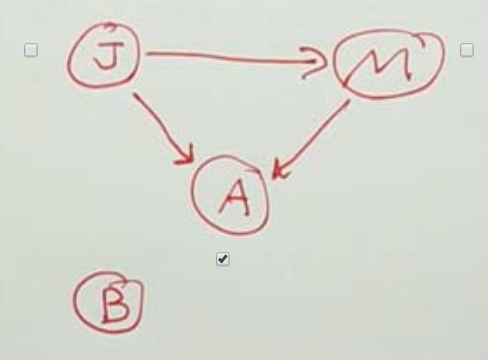 J M
A
B